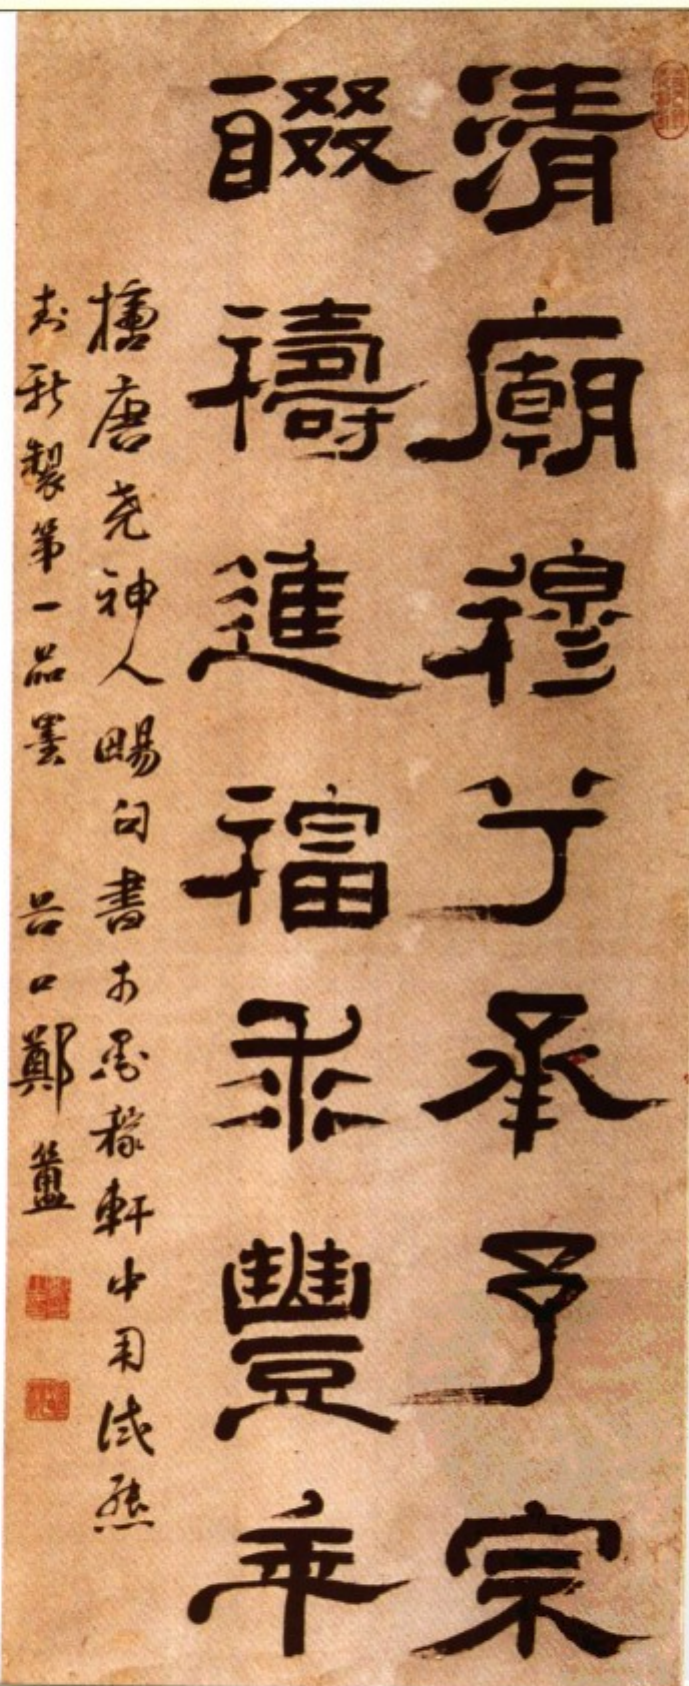 清廟穆兮承予宗
醊禱進福求豐年
唐堯神人暢句書於稼軒中用試
新製第一品墨 谷口鄭簠